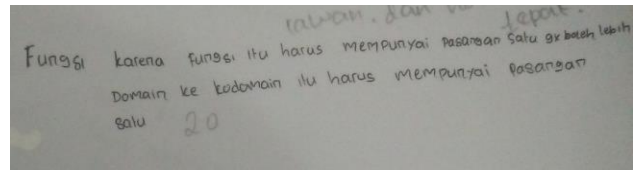 lawan. dan tepat.
Fungsi karena fungsi itu harus mempunyai pasangan satu gk boleh lebih
Domain ke kodomain itu harus mempunyai pasangan
satu 20